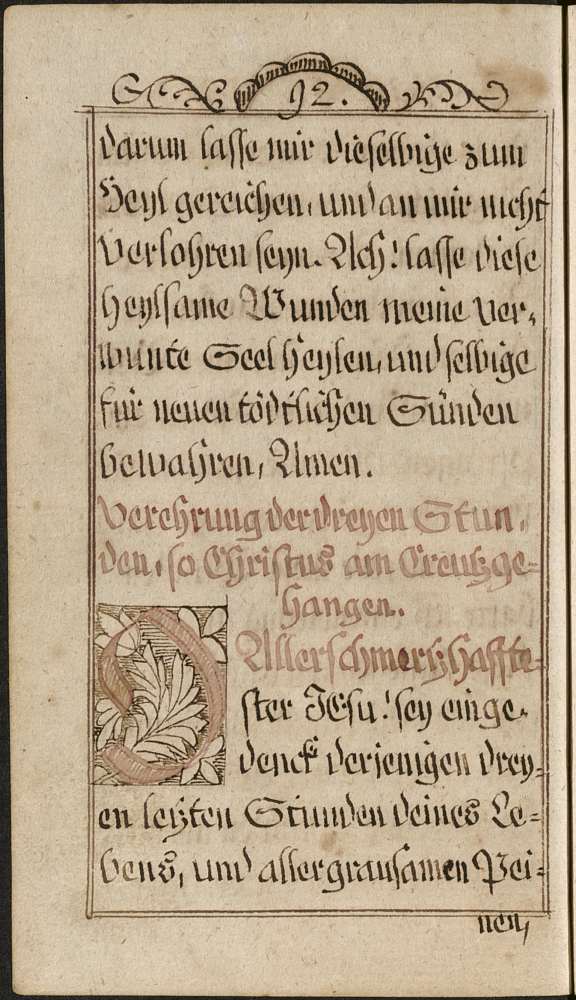 92.
darum lasse mir dieselbige zum
Heyl gereichen, und an mir nicht
verlohren seyn. Ach! lasse diese
heylsame Wunden meine ver,
wunte Seel heylen, und selbige
für neuen tödtlichen Sünden
bewahren, Amen.
Verehrung der dreyen Stun,
den, so Christus am Creutz ge=
hangen.
O Allerschmertzhaffte=
ster JEsu! sey einge,
denck derjenigen drey=
en letzten Stunden deines Le=
bens, und allergrausamen Pei=
nen,